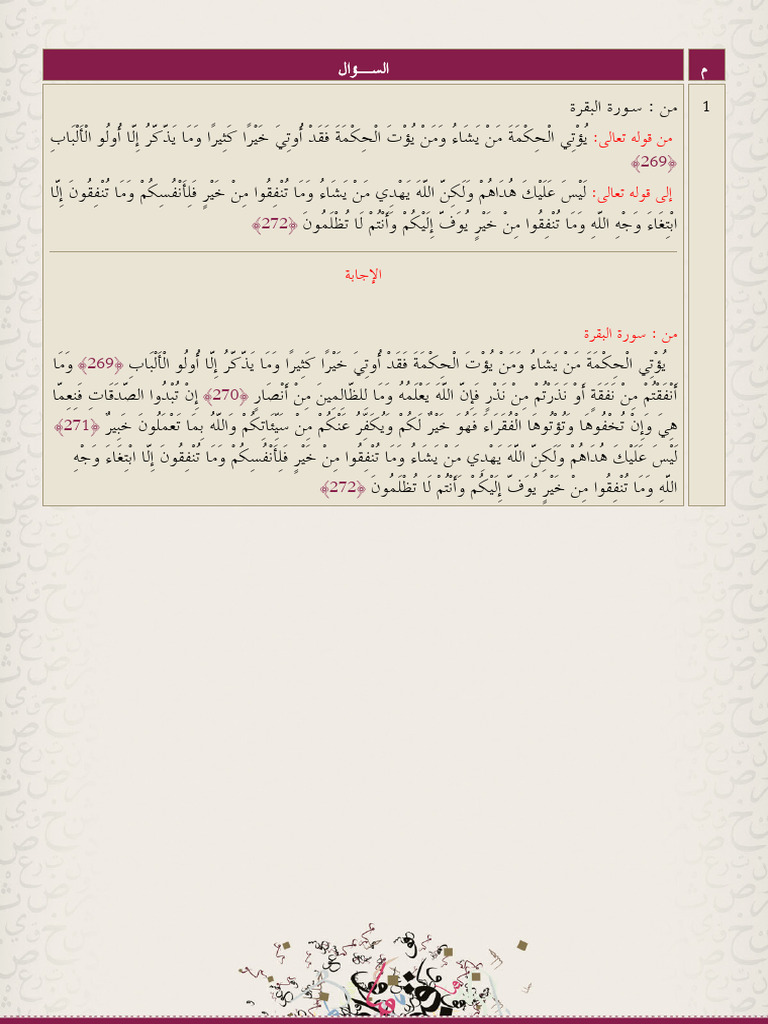 م
الســـؤال
1
من : سورة البقرة
من قوله تعالى: يُؤْتِي الْحِكْمَةَ مَنْ يَشَاءُ وَمَنْ يُؤْتَ الْحِكْمَةَ فَقَدْ أُوتِيَ خَيْرًا كَثِيرًا وَمَا يَذَّكَّرُ إِلَّا أُولُو الْأَلْبَابِ
﴿269﴾
إلى قوله تعالى: لَيْسَ عَلَيْكَ هُدَاهُمْ وَلَكِنَّ اللَّهَ يَهْدِي مَنْ يَشَاءُ وَمَا تُنْفِقُوا مِنْ خَيْرٍ فَلِأَنْفُسِكُمْ وَمَا تُنْفِقُونَ إِلَّا
ابْتِغَاءَ وَجْهِ اللَّهِ وَمَا تُنْفِقُوا مِنْ خَيْرٍ يُوَفَّ إِلَيْكُمْ وَأَنْتُمْ لَا تُظْلَمُونَ ﴿272﴾
الإجابة
من : سورة البقرة
يُؤْتِي الْحِكْمَةَ مَنْ يَشَاءُ وَمَنْ يُؤْتَ الْحِكْمَةَ فَقَدْ أُوتِيَ خَيْرًا كَثِيرًا وَمَا يَذَّكَّرُ إِلَّا أُولُو الْأَلْبَابِ ﴿269﴾ وَمَا
أَنْفَقْتُمْ مِنْ نَفَقَةٍ أَوْ نَذَرْتُمْ مِنْ نَذْرٍ فَإِنَّ اللَّهَ يَعْلَمُهُ وَمَا لِلظَّالِمِينَ مِنْ أَنْصَارٍ ﴿270﴾ إِنْ تُبْدُوا الصَّدَقَاتِ فَنِعِمَّا
هِيَ وَإِنْ تُخْفُوهَا وَتُؤْتُوهَا الْفُقَرَاءَ فَهُوَ خَيْرٌ لَكُمْ وَيُكَفِّرُ عَنْكُمْ مِنْ سَيِّئَاتِكُمْ وَاللَّهُ بِمَا تَعْمَلُونَ خَبِيرٌ ﴿271﴾
لَيْسَ عَلَيْكَ هُدَاهُمْ وَلَكِنَّ اللَّهَ يَهْدِي مَنْ يَشَاءُ وَمَا تُنْفِقُوا مِنْ خَيْرٍ فَلِأَنْفُسِكُمْ وَمَا تُنْفِقُونَ إِلَّا ابْتِغَاءَ وَجْهِ
اللَّهِ وَمَا تُنْفِقُوا مِنْ خَيْرٍ يُوَفَّ إِلَيْكُمْ وَأَنْتُمْ لَا تُظْلَمُونَ ﴿272﴾